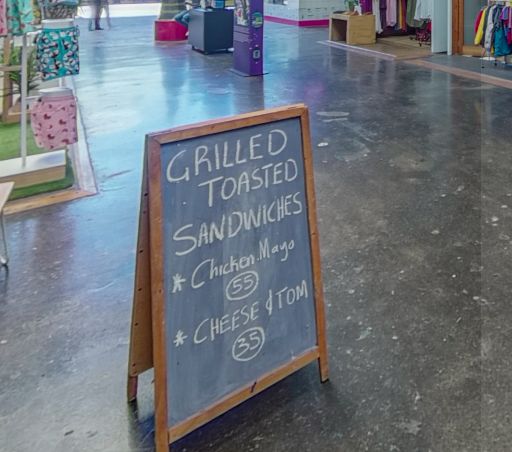 GRILLED
TOASTED
SANDWICHES
* Chicken.Mayo
55
* CHEESE & TOM
35